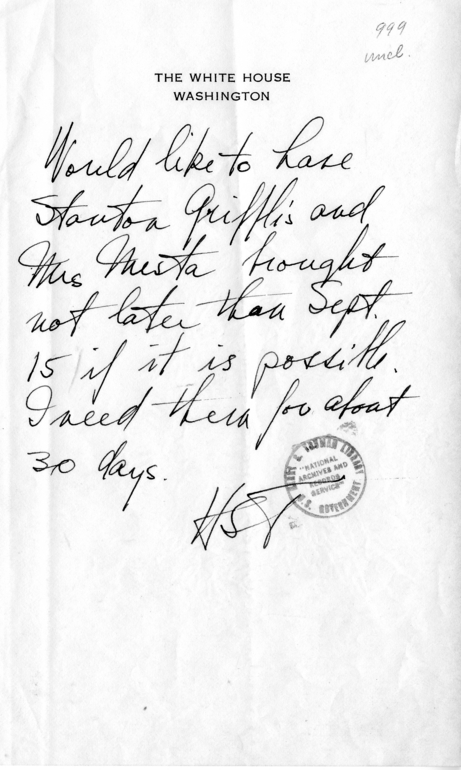 999
uncl.
THE WHITE HOUSE
WASHINGTON
Would like to have
Stanton Griffis and
Mrs Mesta brought
not later than Sept.
15 if it is possible.
I need them for about
30 days.
HST
HARRY S. TRUMAN LIBRARY
"NATIONAL
ARCHIVES AND
RECORDS
SERVICE"
U.S. GOVERNMENT